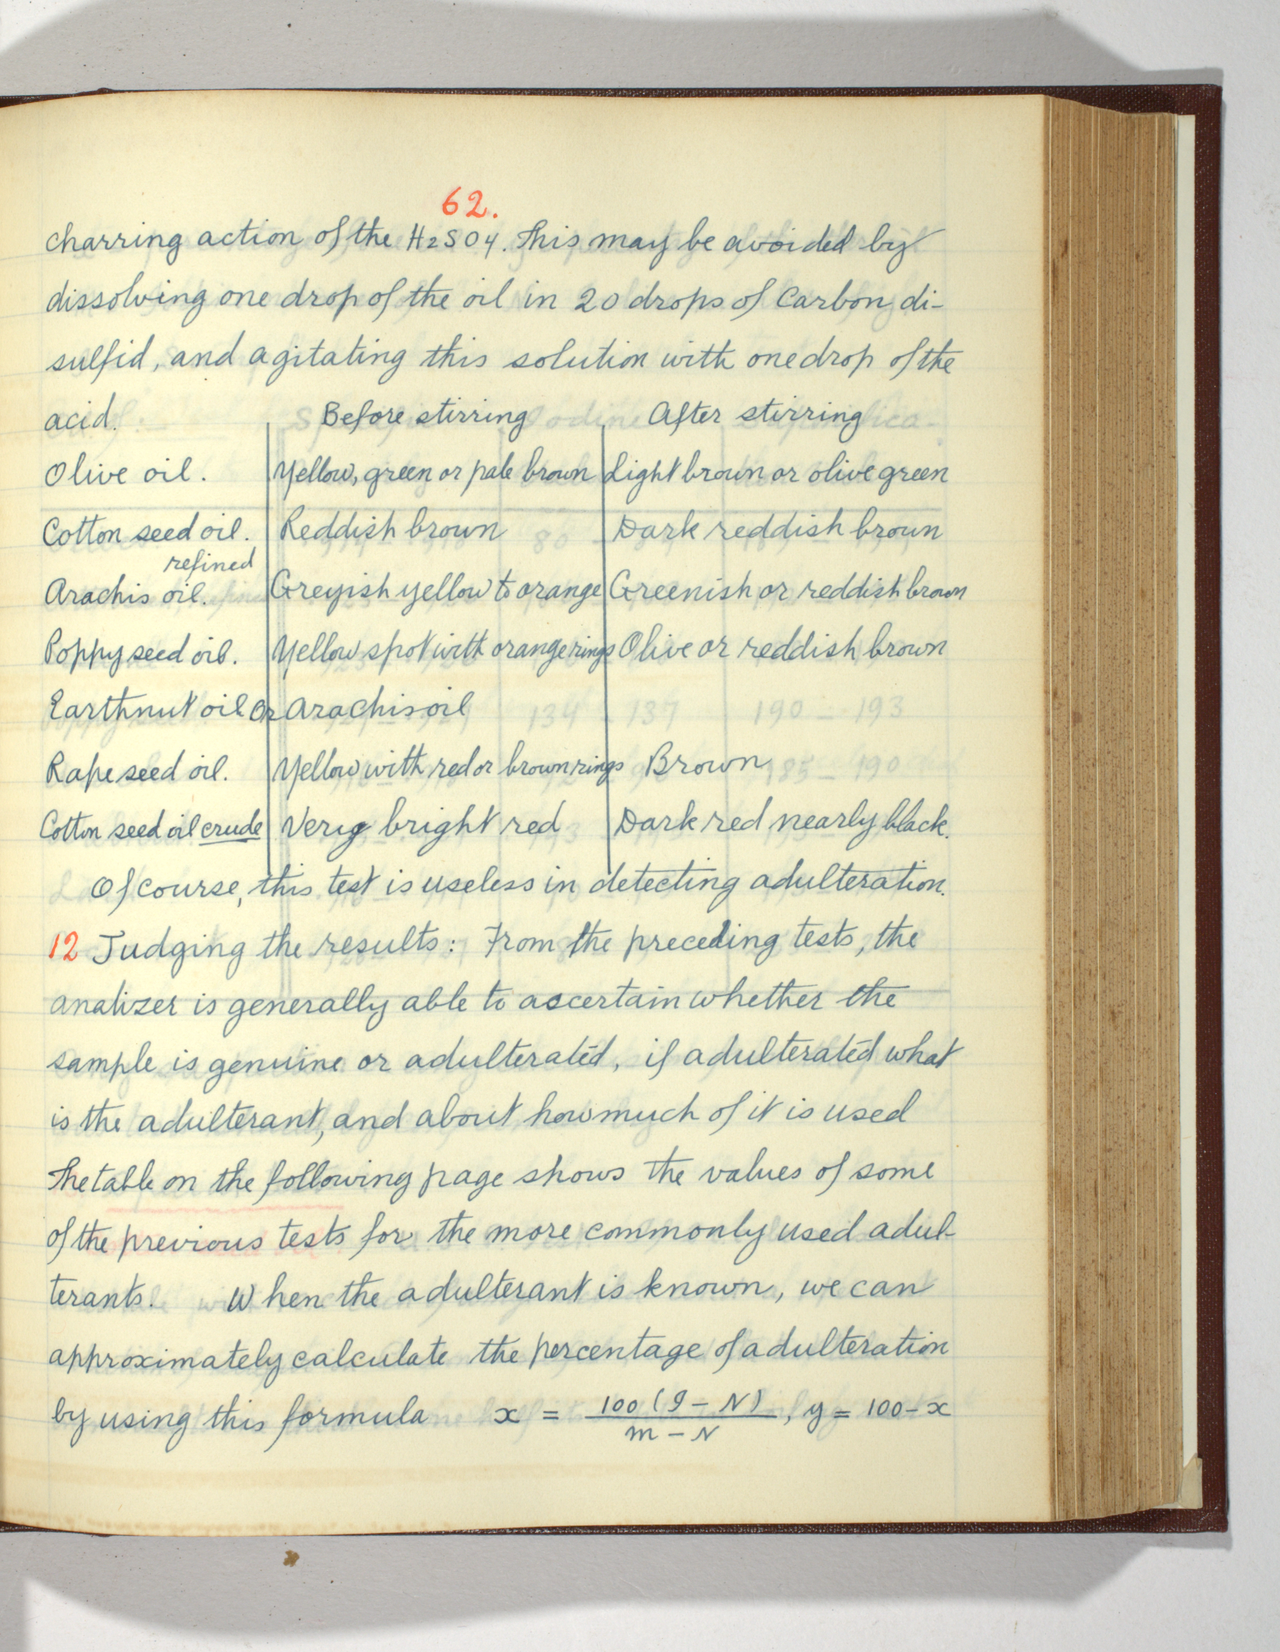 62.
charring action of the H2SO4. This may be avoided by
dissolving one drop of the oil in 20 drops of Carbon di-
sulfid, and agitating this solution with one drop of the
acid. Before stirring After stirring
Olive oil. Yellow, green or pale brown Light brown or olive green
Cotton seed oil. Reddish brown Dark reddish brown
refined
Arachis oil. Greyish yellow to orange Greenish or reddish brown
Poppy seed oil. Yellow spot with orange rings Olive or reddish brown
Earthnut oil or Arachis oil
Rape seed oil. Yellow with red or brown rings Brown
Cotton seed oil crude Very bright red Dark red nearly black.
Of course, this test is useless in detecting adulteration.
12 Judging the results: From the preceding tests, the
analizer is generally able to ascertain whether the
sample is genuine or adulterated, if adulterated what
is the adulterant, and about how much of it is used
The table on the following page shows the values of some
of the previous tests for the more commonly used adul-
terants. When the adulterant is known, we can
approximately calculate the percentage of adulteration
by using this formula x = 100 (I - N) / m - N, y = 100 - x